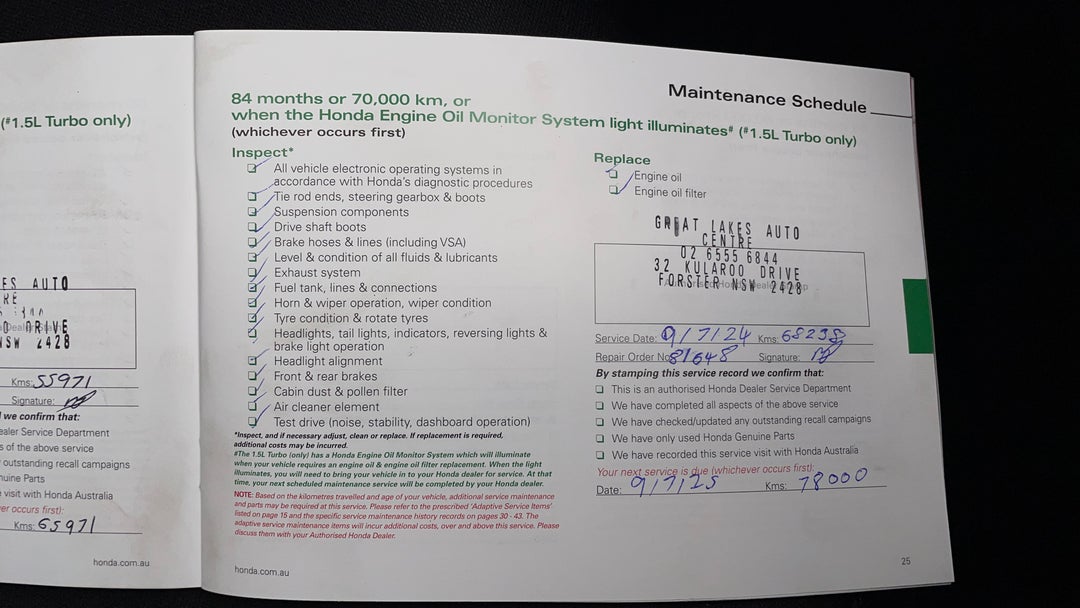 (#1.5L Turbo only)
ES AUTO
RE
NSW 2428
Kms: 55971
Signature:
we confirm that:
ealer Service Department
s of the above service
outstanding recall campaigns
nuine Parts
visit with Honda Australia
er occurs first):
Kms: 65971
honda.com.au
Maintenance Schedule
84 months or 70,000 km, or
when the Honda Engine Oil Monitor System light illuminates# (#1.5L Turbo only)
(whichever occurs first)
Inspect*
All vehicle electronic operating systems in
accordance with Honda's diagnostic procedures
Tie rod ends, steering gearbox & boots
Suspension components
Drive shaft boots
Brake hoses & lines (including VSA)
Level & condition of all fluids & lubricants
Exhaust system
Fuel tank, lines & connections
Horn & wiper operation, wiper condition
Tyre condition & rotate tyres
Headlights, tail lights, indicators, reversing lights &
brake light operation
Headlight alignment
Front & rear brakes
Cabin dust & pollen filter
Air cleaner element
Test drive (noise, stability, dashboard operation)
*Inspect, and if necessary adjust, clean or replace. If replacement is required,
additional costs may be incurred.
#The 1.5L Turbo (only) has a Honda Engine Oil Monitor System which will illuminate
when your vehicle requires an engine oil & engine oil filter replacement. When the light
illuminates, you will need to bring your vehicle in to your Honda dealer for service. At that
time, your next scheduled maintenance service will be completed by your Honda dealer.
NOTE: Based on the kilometres travelled and age of your vehicle, additional service maintenance
and parts may be required at this service. Please refer to the prescribed 'Adaptive Service Items'
listed on page 15 and the specific service maintenance history records on pages 30 - 43. The
adaptive service maintenance items will incur additional costs, over and above this service. Please
discuss them with your Authorised Honda Dealer.
honda.com.au
Replace
Engine oil
Engine oil filter
GREAT LAKES AUTO
CENTRE
02 6555 6844
32 KULAROO DRIVE
FORSTER NSW 2428
Service Date: 9/7/24 Kms: 68238
Repair Order No: 81648 Signature:
By stamping this service record we confirm that:
This is an authorised Honda Dealer Service Department
We have completed all aspects of the above service
We have checked/updated any outstanding recall campaigns
We have only used Honda Genuine Parts
We have recorded this service visit with Honda Australia
Your next service is due (whichever occurs first):
Date: 9/7/25 Kms: 78000
25